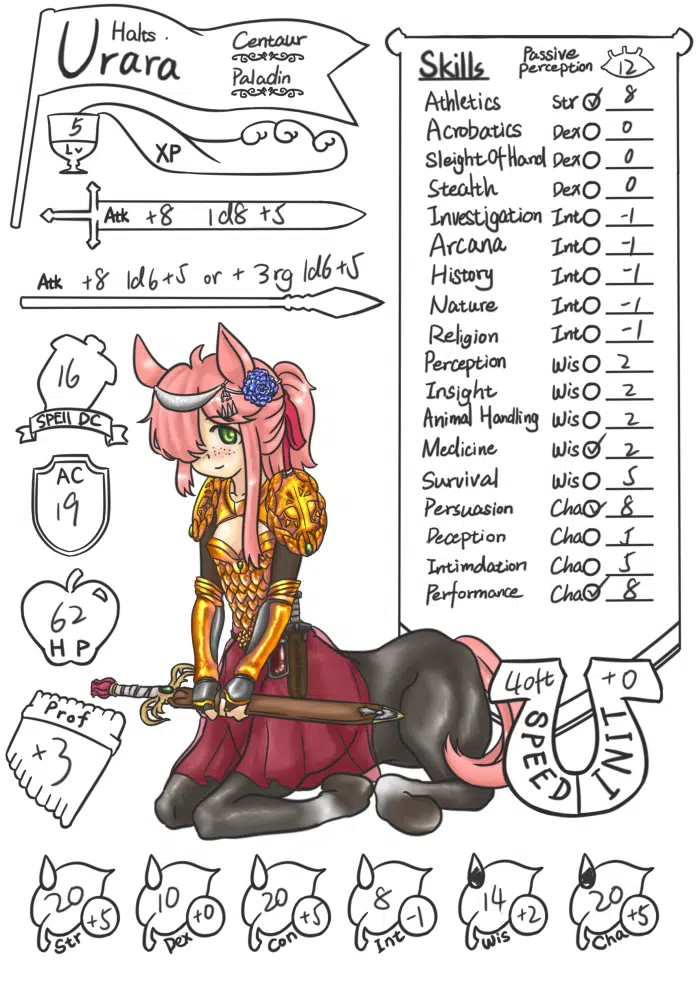 Halts
Urara
Centaur
Paladin
5
Lv
XP
Atk +8 1d8 +5
Atk +8 1d6+5 or + 3rg 1d6+5
16
SPEll DC
AC
19
62
HP
Prof
×3
Skills
Passive
perception 12
Athletics Str 8
Acrobatics Dex 0
Sleight Of Hand Dex 0
Stealth Dex 0
Investigation Int -1
Arcana Int -1
History Int -1
Nature Int -1
Religion Int -1
Perception Wis 2
Insight Wis 2
Animal Handling Wis 2
Medicine Wis 2
Survival Wis 5
Persuasion Cha 8
Deception Cha 5
Intimdation Cha 5
Performance Cha 8
40ft
SPEED
+0
INIT
20 +5
Str
10 +0
Dex
20 +5
Con
8 -1
Int
14 +2
Wis
20 +5
Cha